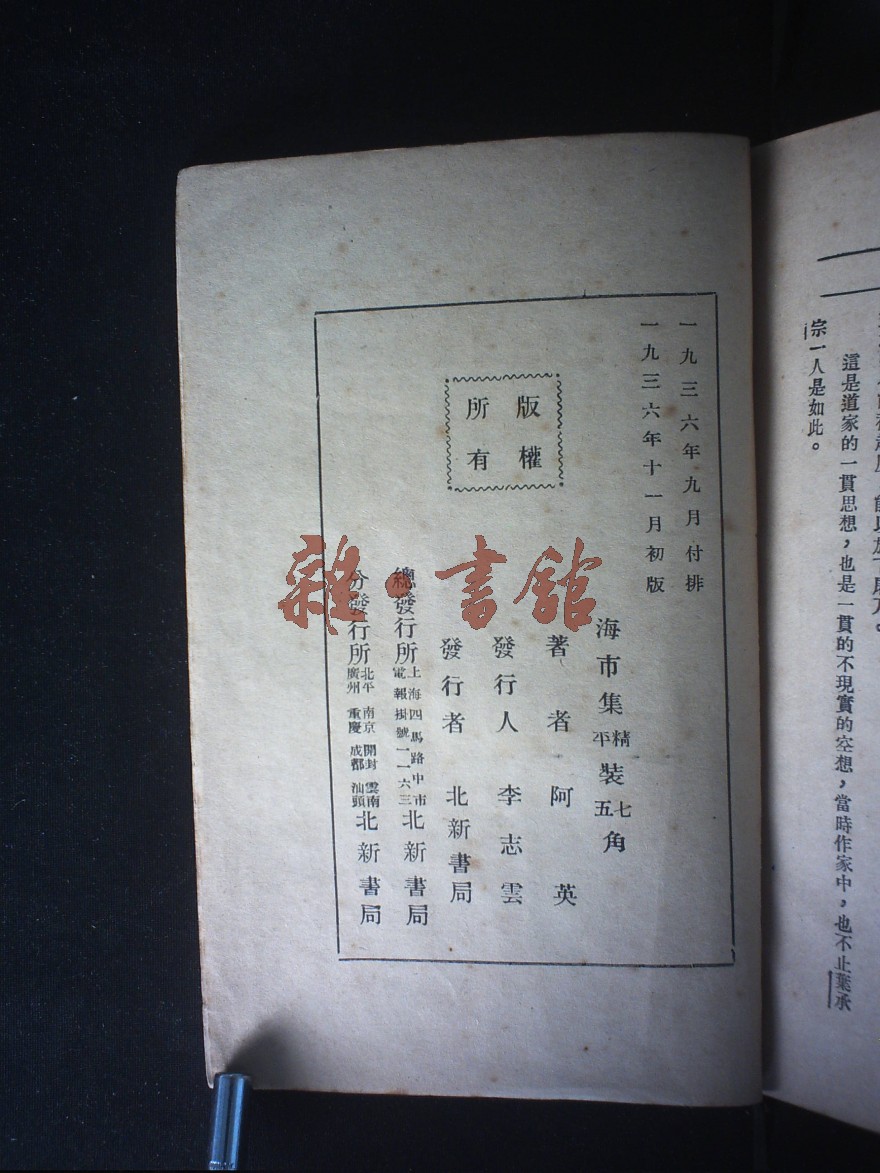 一九三六年九月付排
一九三六年十一月初版
版權
所有
海市集 精平裝 七五角
著者 阿英
發行人 李志雲
發行者 北新書局
總發行所 上海四馬路中市 電報掛號一一六三 北新書局
分發行所 北平 南京 開封 雲南 廣州 重慶 成都 汕頭 北新書局
雜·書館
這是道家的一貫思想，也是一貫的不現實的空想，當時作家中，也不止葉承
宗一人是如此。